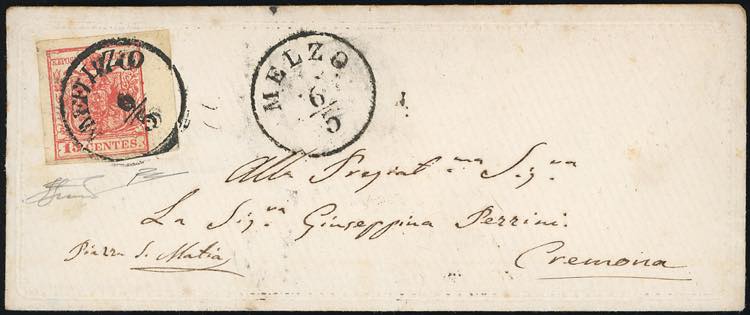 MELZO
6/5
MELZO
6/5
15 CENTES.
Alla Pregiat.ma Sig.ra
La Sig.ra Giuseppina Perrini.
Piazza S. Matia
Cremona